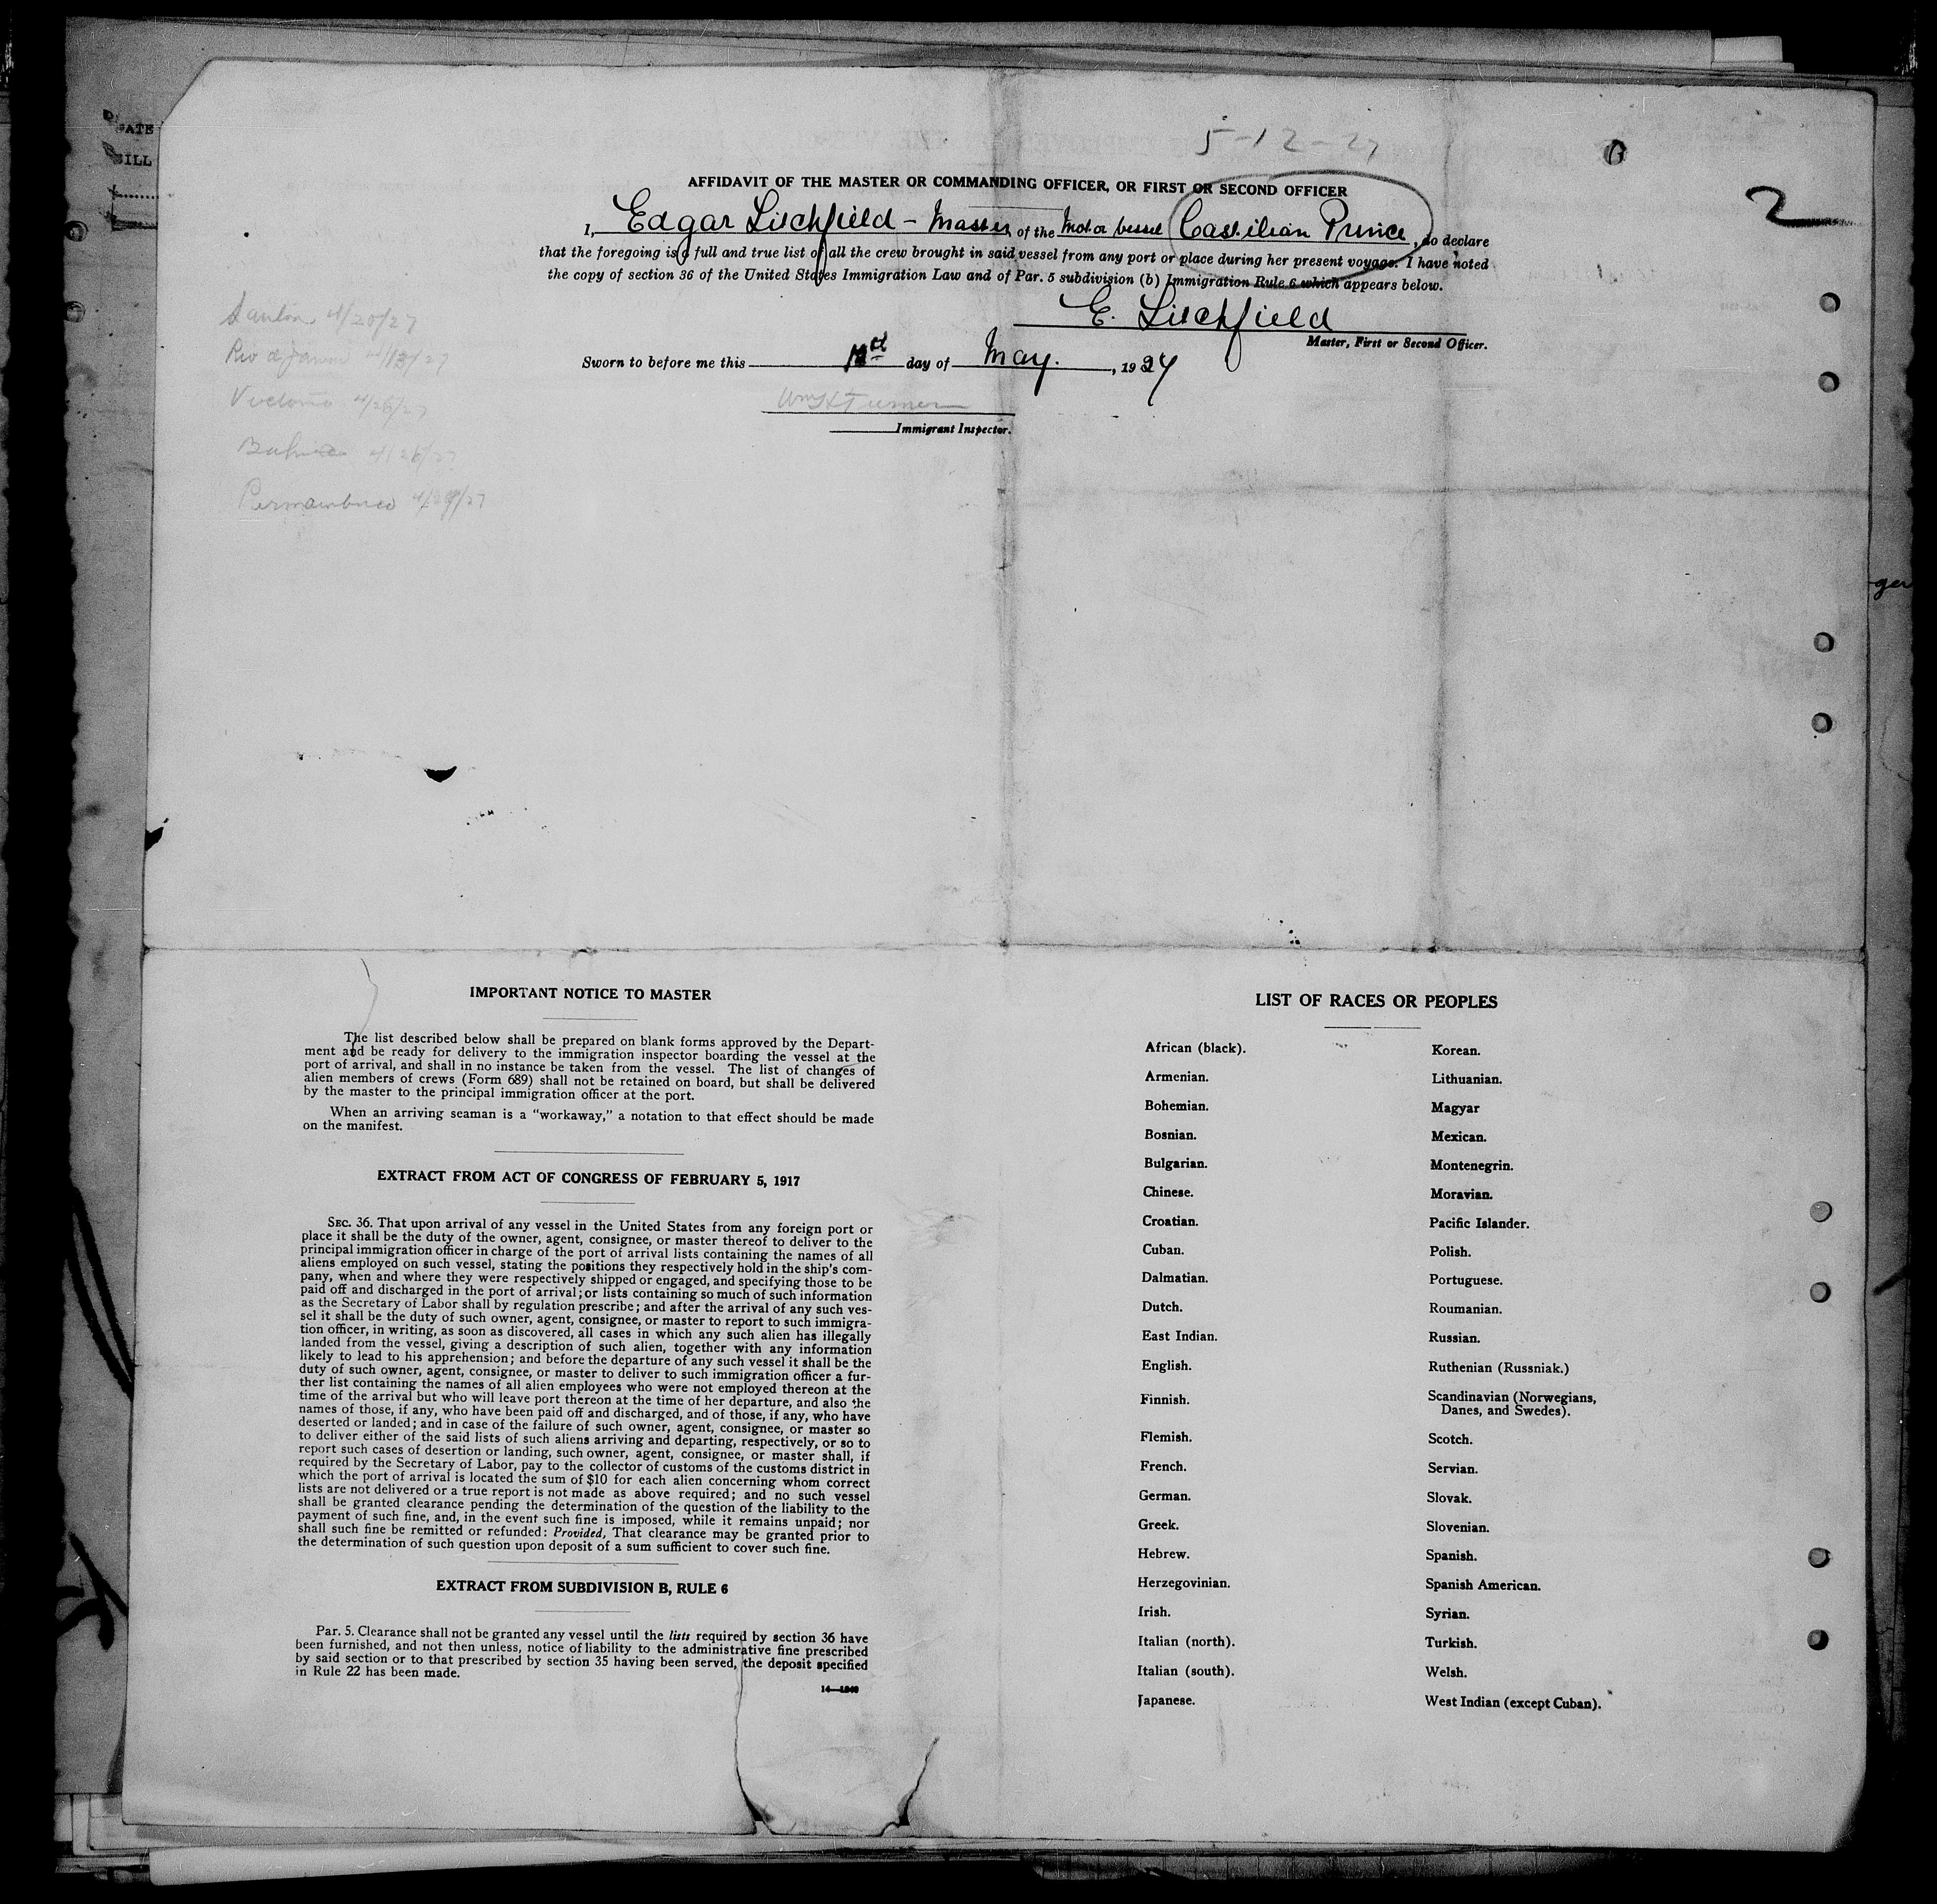 5-12-27
2
AFFIDAVIT OF THE MASTER OR COMMANDING OFFICER, OR FIRST OR SECOND OFFICER
I, Edgar Litchfield - Master of the Motor vessel Castilian Prince, do declare
that the foregoing is a full and true list of all the crew brought in said vessel from any port or place during her present voyage. I have noted
the copy of section 36 of the United States Immigration Law and of Par. 5 subdivision (b) Immigration Rule 6 which appears below.
E. Litchfield
Master, First or Second Officer.
Sworn to before me this day of May. , 1927
Wm H Turner
Immigrant Inspector.
4/20/27
Rio d Janeiro 27
Victoria 27
Bahia 4/26/27
Pernambuco 27
IMPORTANT NOTICE TO MASTER
The list described below shall be prepared on blank forms approved by the Depart-
ment and be ready for delivery to the immigration inspector boarding the vessel at the
port of arrival, and shall in no instance be taken from the vessel. The list of changes of
alien members of crews (Form 689) shall not be retained on board, but shall be delivered
by the master to the principal immigration officer at the port.
When an arriving seaman is a "workaway," a notation to that effect should be made
on the manifest.
EXTRACT FROM ACT OF CONGRESS OF FEBRUARY 5, 1917
SEC. 36. That upon arrival of any vessel in the United States from any foreign port or
place it shall be the duty of the owner, agent, consignee, or master thereof to deliver to the
principal immigration officer in charge of the port of arrival lists containing the names of all
aliens employed on such vessel, stating the positions they respectively hold in the ship's com-
pany, when and where they were respectively shipped or engaged, and specifying those to be
paid off and discharged in the port of arrival; or lists containing so much of such information
as the Secretary of Labor shall by regulation prescribe; and after the arrival of any such ves-
sel it shall be the duty of such owner, agent, consignee, or master to report to such immigra-
tion officer, in writing, as soon as discovered, all cases in which any such alien has illegally
landed from the vessel, giving a description of such alien, together with any information
likely to lead to his apprehension; and before the departure of any such vessel it shall be the
duty of such owner, agent, consignee, or master to deliver to such immigration officer a fur-
ther list containing the names of all alien employees who were not employed thereon at the
time of the arrival but who will leave port thereon at the time of her departure, and also the
names of those, if any, who have been paid off and discharged, and of those, if any, who have
deserted or landed; and in case of the failure of such owner, agent, consignee, or master so
to deliver either of the said lists of such aliens arriving and departing, respectively, or so to
report such cases of desertion or landing, such owner, agent, consignee, or master shall, if
required by the Secretary of Labor, pay to the collector of customs of the customs district in
which the port of arrival is located the sum of $10 for each alien concerning whom correct
lists are not delivered or a true report is not made as above required; and no such vessel
shall be granted clearance pending the determination of the question of the liability to the
payment of such fine, and, in the event such fine is imposed, while it remains unpaid; nor
shall such fine be remitted or refunded: Provided, That clearance may be granted prior to
the determination of such question upon deposit of a sum sufficient to cover such fine.
EXTRACT FROM SUBDIVISION B, RULE 6
Par. 5. Clearance shall not be granted any vessel until the lists required by section 36 have
been furnished, and not then unless, notice of liability to the administrative fine prescribed
by said section or to that prescribed by section 35 having been served, the deposit specified
in Rule 22 has been made.
LIST OF RACES OR PEOPLES
African (black).
Armenian.
Bohemian.
Bosnian.
Bulgarian.
Chinese.
Croatian.
Cuban.
Dalmatian.
Dutch.
East Indian.
English.
Finnish.
Flemish.
French.
German.
Greek.
Hebrew.
Herzegovinian.
Irish.
Italian (north).
Italian (south).
Japanese.
Korean.
Lithuanian.
Magyar
Mexican.
Montenegrin.
Moravian.
Pacific Islander.
Polish.
Portuguese.
Roumanian.
Russian.
Ruthenian (Russniak.)
Scandinavian (Norwegians,
Danes, and Swedes).
Scotch.
Servian.
Slovak.
Slovenian.
Spanish.
Spanish American.
Syrian.
Turkish.
Welsh.
West Indian (except Cuban).